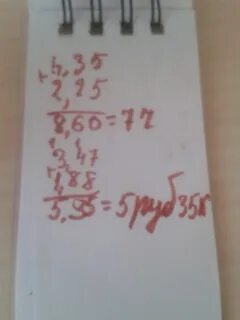 4,35
+
2,25
8,60=7 2
3,47
+
1,88
5,35=5 руб 35к